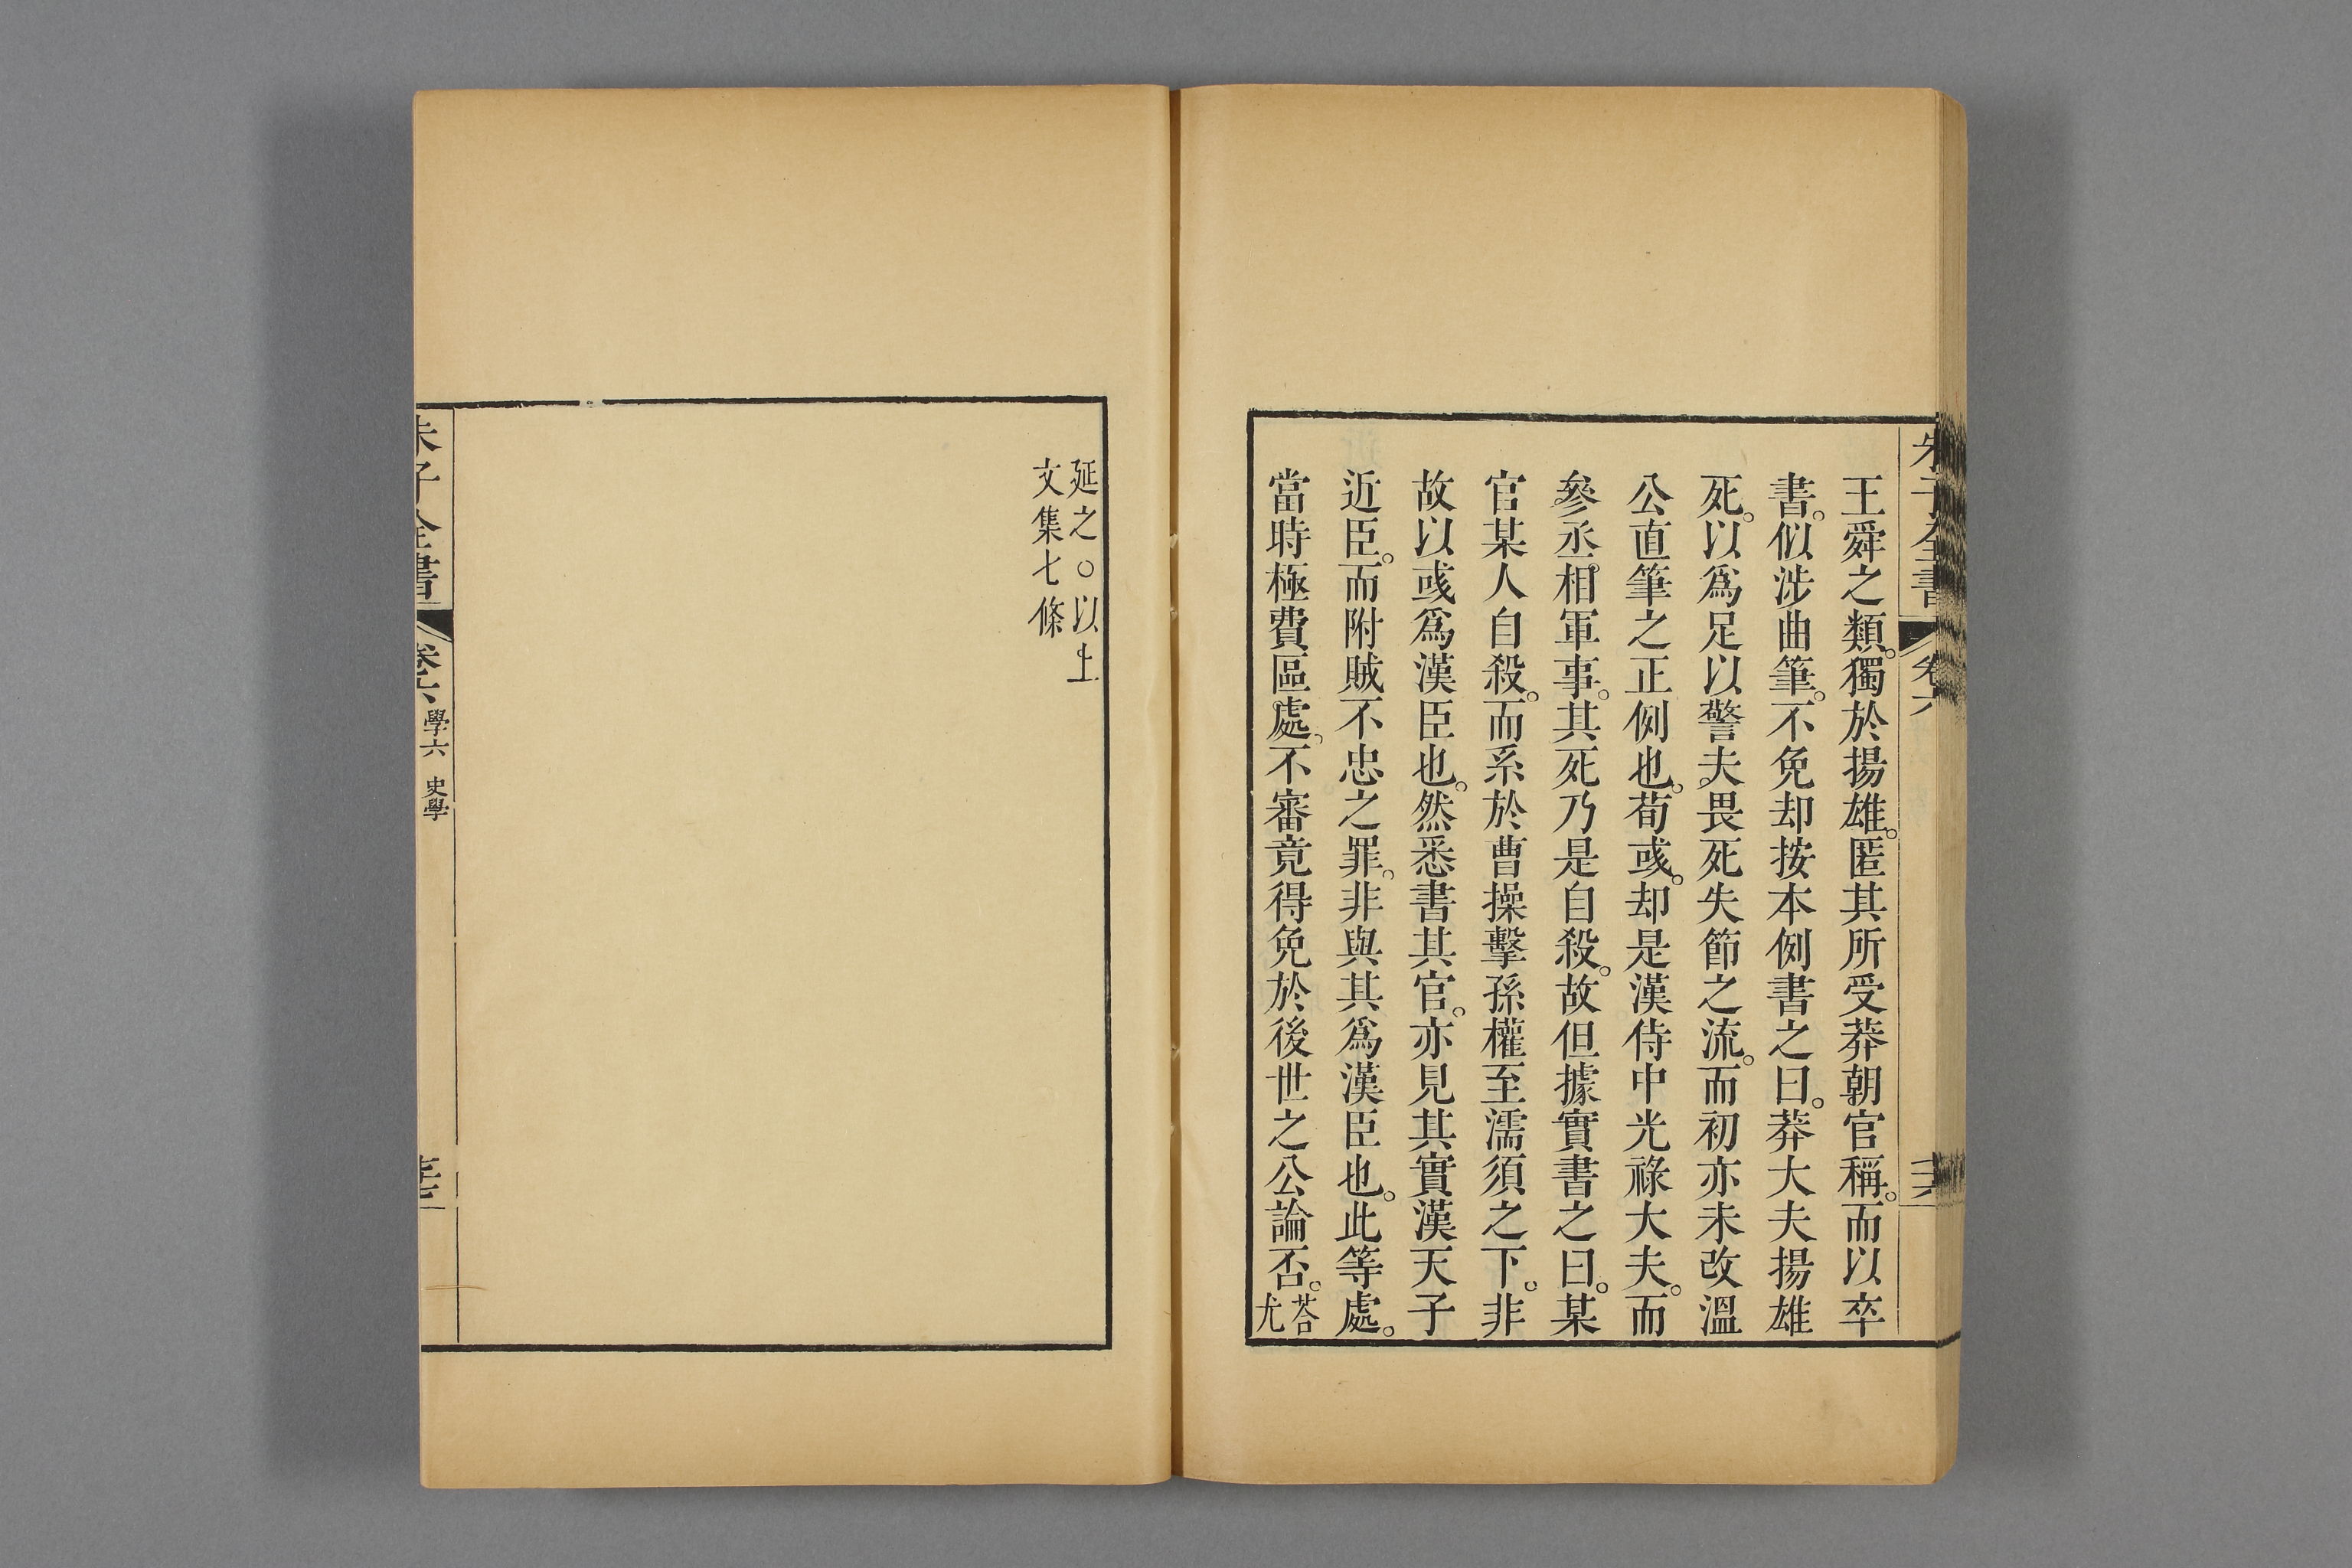 王舜之類。獨於揚雄。匿其所受莽朝官稱。而以卒
書。似涉曲筆。不免却按本例書之曰。莽大夫揚雄
死。以爲足以警夫畏死失節之流。而初亦未改溫
公直筆之正例也。荀彧。却是漢侍中光祿大夫。而
參丞相軍事。其死乃是自殺。故但據實書之曰。某
官某人自殺。而系於曹操擊孫權至濡須之下。非
故以彧爲漢臣也。然悉書其官。亦見其實漢天子
近臣。而附賊不忠之罪。非與其爲漢臣也。此等處。
當時極費區處。不審竟得免於後世之公論否。荅
尤
延之○以上
文集七條
朱子全書
卷六
學六 史學
朱子全書
卷六